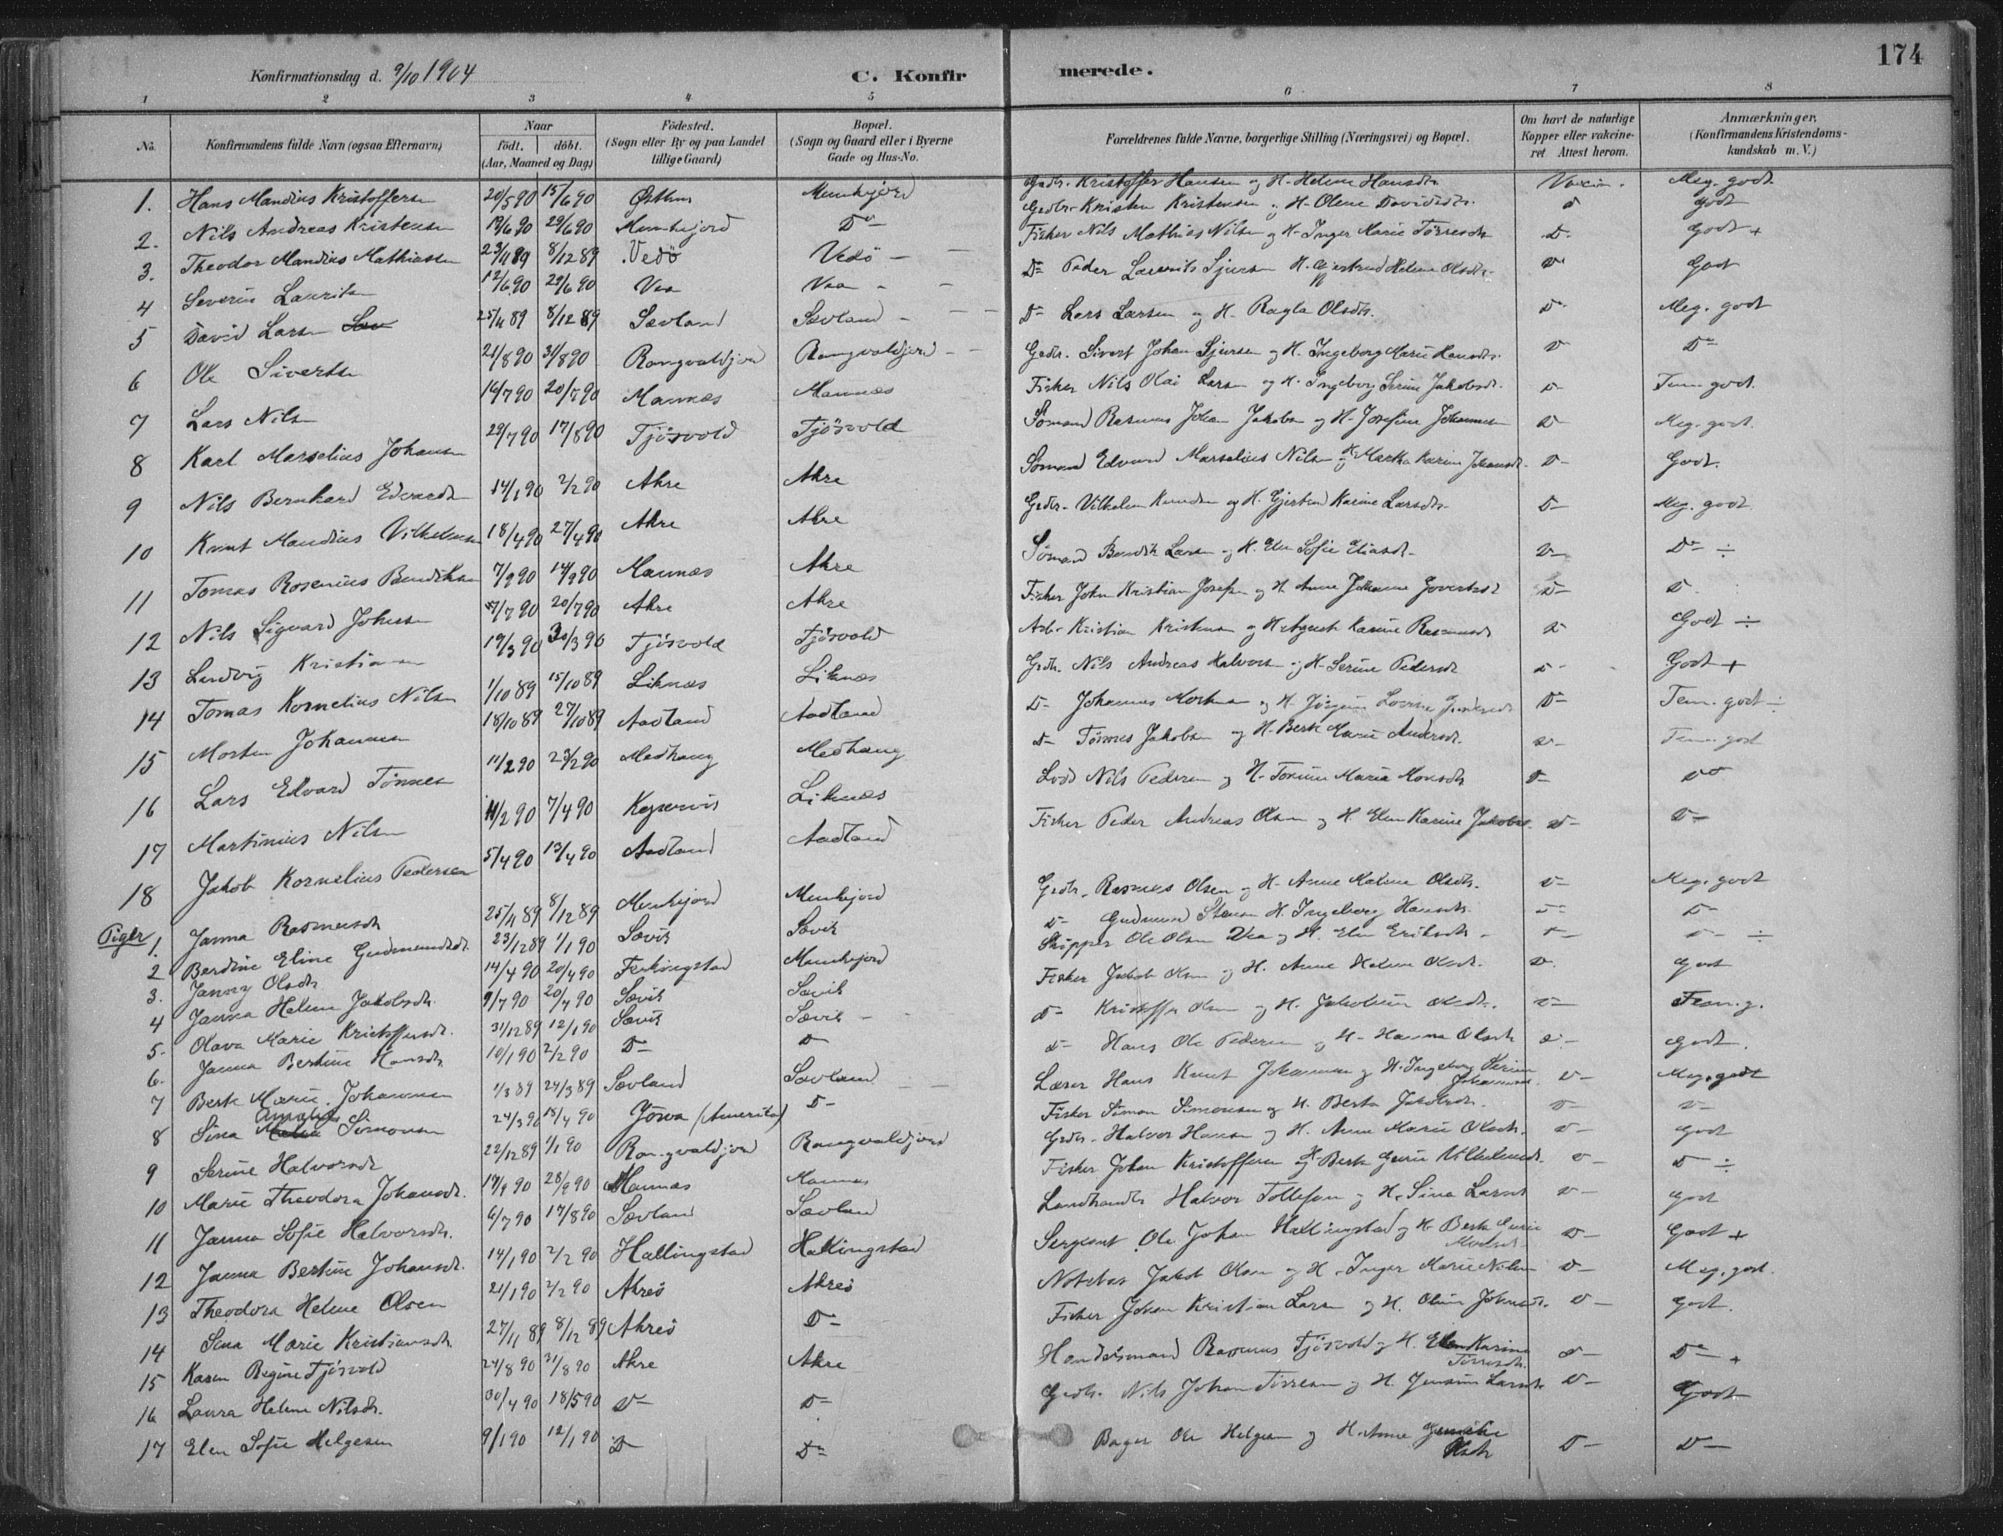 174
Konfirmationsdag d. 9/10 1904 C. Konfirmerede.
1 2 3 4 5 6 7 8
No. Konfirmandens fulde Navn (ogsaa Efternavn) Naar født. døbt. (Aar, Maaned og Dag) Fødested. (Sogn eller By og paa Landet tillige Gaard) Bopæl. (Sogn og Gaard eller i Byerne Gade og Hus-No. Forældrenes fulde Navne, borgerlige Stilling (Næringsvei) og Bopæl. Om havt de naturlige Kopper eller vakcineret Attest herom. Anmærkninger. (Konfirmandens Kristendomskundskab m. V.)
1. Hans Mandius Kristoffersen 20/5 90 15/6 90 Munkejord Gbdr. Kristoffer Hansen og H. Helene Hansdtr. Vaccin. Meg. godt
2. Nils Andreas Kristensen 19/6 90 29/6 90 Munkejord Do Gbdr. Kristen Kristensen og H. Olene Davidsdtr. D Godt
3. Theodor Mandius Mathiassen 23/11 89 8/12 89 Vedø Vedø Fisker Nils Mathias Nilsen og H. Inger Marie Tørresdtr D. Godt +
4 Severin Lauritsen 12/6 90 29/6 90 Vea Vea Do Peder Laurits Sjursen H. Gjertrud Helene Olsdtr. Do Godt
5 David Larsen 25/11 89 8/12 89 Sævland Sævland Do Lars Larsen og H. Ragla Olsdtr. D. Meg. godt
6 Ole Sivertsen 21/8 90 31/8 90 Rangvaldjord Rangvaldjord Gbdr. Sivert Johan Sjursen og H. Ingeborg Marie Hansdtr. D Do
7 Lars Nilsen 16/7 90 20/7 90 Mannæs Mannæs Fisker Nils Olai Larsen og H. Ingeborg Serine Jakobsdtr. D Tem. godt
8 Karl Marselius Johansen 29/7 90 17/8 90 Tjøsvold Tjøsvold Sømand Rasmus Johan Jakobsen og H. Josefine Johannesen D Meg. godt.
9 Nils Bernhard Edvardsen 14/1 90 2/2 90 Akre Akre Sømand Edvard Marselius Nilsen og H. Martha Karine Johansdtr. D Godt.
10 Knut Mandius Vilhelmsen 18/4 90 27/4 90 Akre Akre Gbdr. Vilhelm Knudsen og H. Gjertrud Karine Larsdtr. D Meg. godt
11 Tomas Rosenius Bendiksen 7/9 90 14/9 90 Mannæs Akre Sømand Bendik Larsen og H. Elen Sofie Eliasdtr. D Do ÷
12 Nils Sigvard Johnsen 7/7 90 20/7 90 Akre Akre Fisker John Kristian Josefsen og H. Anne Johanne Govertsdtr D D.
13 Ludvig Kristiansen 19/3 90 30/3 90 Tjøsvold Tjøsvold Arb. Kristian Kristensen og H. Agnete Karine Rasmusdtr D Godt ÷
14 Tomas Kornelius Nilsen 1/10 89 15/10 89 Liknæs Liknæs Gbdr. Nils Andreas Halvorsen og H. Serine Pedersdtr D Godt +
15 Morten Johannesen 18/10 89 27/10 89 Aadland Aadland Do Johannes Mortensen og H. Do Tem. godt ÷
16 Lars Edvard Tønnesen 11/2 90 23/2 90 Medhaug Medhaug Do Tønnes Jakobsen og H. Berte Marie Andersdtr. D Tem. godt
17 Martinius Nilsen 11/2 90 7/4 90 Liknæs Lods Nils Pedersen og H. Marie Monsdtr D Do
18 Jakob Kornelius Pedersen 5/4 90 13/4 90 Aadland Aadland Fisker Peder Andreas Olsen og H. Elen Karine Jakobsd. D D
Piger
1. Janna Rasmusdtr 25/11 89 8/12 89 Munkejord Munkejord Gbdr. Rasmus Olsen og H. Anne Malene Olsdtr. D Meg. godt
2 Berdine Eline Gudmundsdtr. 23/12 89 1/1 90 Sævik Sævik Do Gudmund H. Ingeborg Hansdtr. D D
3. Janny Olsdtr. 14/4 90 20/4 90 Ferkingstad Munkejord Skipper Ole Olsen Vea og H. Elen Eriksdtr. D D ÷
4 Janna Helene Jakobsdtr. 9/7 90 20/7 90 Sævik Sævik Fisker Jakob Olsen og H. Anne Helene Olsdtr. D Godt
5. Olava Marie Kristoffersdtr. 31/12 89 12/1 90 Sævik Sævik Do Kristoffer Olsen og H. Jakobine Olsdtr. D Tem. g.
6. Janna Bertine Hansdtr 10/1 90 2/2 90 D D Do Hans Ole Pedersen og H. Hanna Olsdtr D Godt.
7 Berte Marie Johannesen 1/3 89 24/3 89 Sævland Sævland Lærer Hans Knut Johannesen og H. Ingeborg Serine Johannesd. D Meg. godt
8 Sina Amalia Simonsen 24/3 90 13/4 90 Jowa (Amerika) D Fisker Simon Simonsen og H. Berta Jakobsdtr. D D
9 Serine Halvorsdtr 22/12 89 1/1 90 Rangvaldjord Rangvaldjord Gbdr. Halvor Hansen og H. Anne Marie Olsdtr. D Godt
10 Marie Theodora Johansdtr. 19/9 90 28/9 90 Mannæs Mannæs Fisker Johan Kristoffersen og H. Berte Gurie Vilhelmsdtr. D D ÷
11 Janna Sofie Halvorsdtr. 6/7 90 17/8 90 Sævland Sævland Landhandler Halvor Tollefsen og H. Sina Larsdtr D Godt
12 Janna Bertine Johansdtr. 14/1 90 2/2 90 Hallingstad Hallingstad Sergeant Ole Johan Hallingstad og H. Berte Gurine D Godt +
13 Theodora Helene Olsen 21/1 90 2/2 90 Akreø Akreø Notebas Jakob Olsen og H. Inger Marie Nilsen D Meg. godt.
14 Sina Marie Kristiansdtr. 27/11 89 8/12 89 Akreø Do Fisker Johan Kristian Larsen og H. Oline Johnsdtr. D Godt.
15 Karen Regine Tjøsvold 24/8 90 31/8 90 Akre Akre Handelsmand Rasmus Tjøsvold og H. Elen Karine Tørresdtr. D Do +
16 Laura Helene Nilsdtr. 30/4 90 18/5 90 D D Gbdr. Nils Johan Tørresen og H. Larsdtr D Godt
17 Elen Sofie Helgesen 9/1 90 12/1 90 D Do Bager Ole Helgesen og H. Anne Olsdtr D D